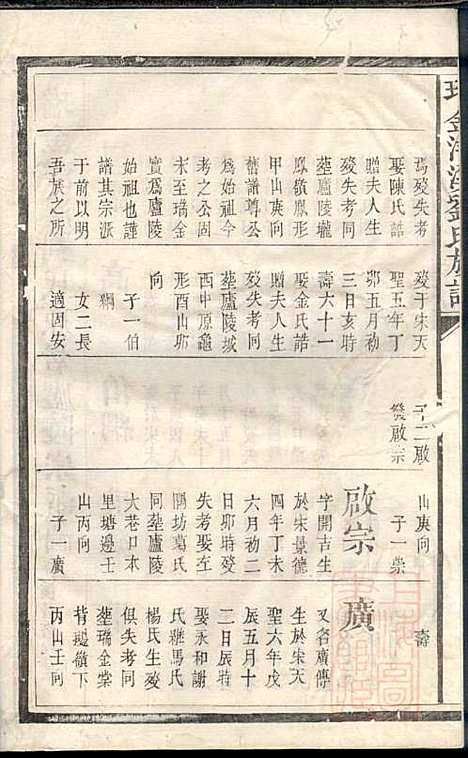 劉氏族譜
焉歿失考
娶陳氏誥
贈夫人生
歿失考同
塟廬陵巃
鳳嶺鳳形
甲山庚向
舊譜尊公
為始祖今
考之公固
未至瑞金
實為廬陵
始祖也謹
譜其宗派
于前以明
吾族之所
歿于宋天
聖五年丁
卯五月初
三日亥時
壽六十一
娶金氏誥
贈夫人生
歿失考同
塟廬陵城
西中原龜
形酉山卯
向
子一伯
綱
女二長
適固安
子二啟
發啟宗
山庚向
子一榮
啟宗
字開吉生
於宋景德
四年丁未
六月初二
日卯時歿
失考娶左
關坊葛氏
同塟廬陵
大巷口本
里塘邊壬
山丙向
子一廣
壽
廣
又名廣傳
生於宋天
聖六年戊
辰五月十
二日辰時
娶永和謝
氏繼馬氏
楊氏生歿
俱失考同
塟瑞金棠
背嶺下
丙山壬向